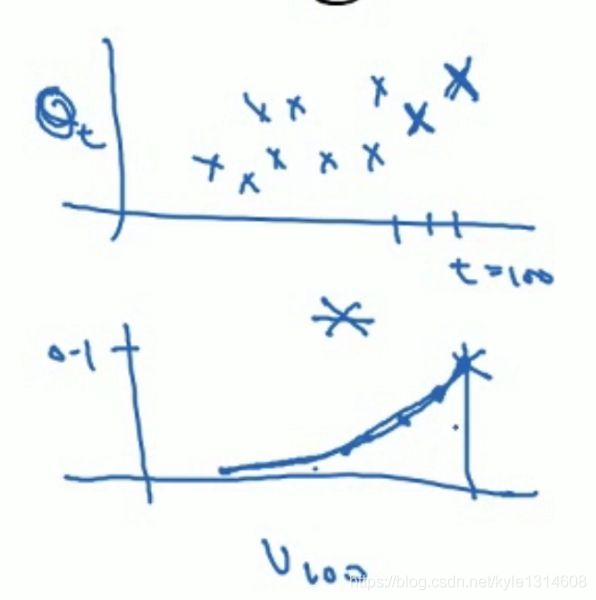 θt
t=100
0.1
V100
https://blog.csdn.net/kyle1314608